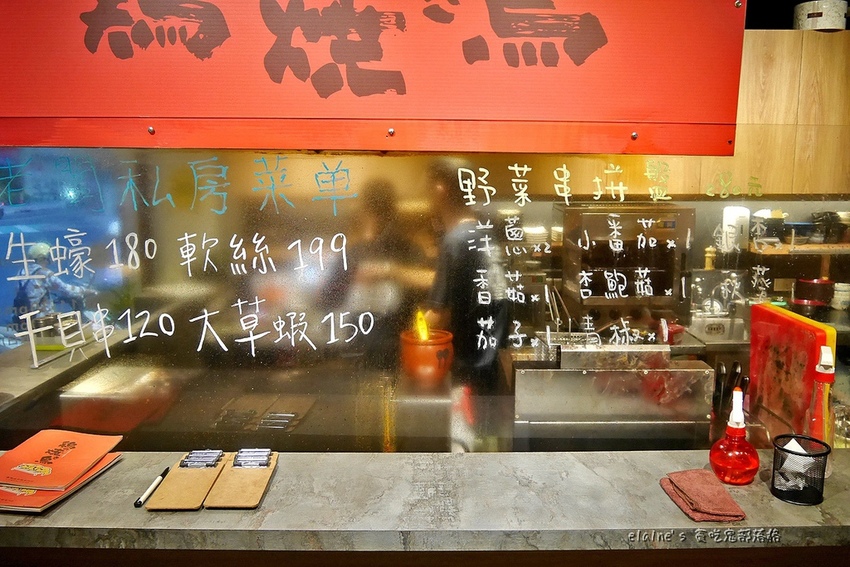 老闆私房菜单
生蠔180 軟絲199
干貝串120 大草蝦150
野菜串拼盤 280元
洋蔥x2 小番茄x1 銀杏
香菇x1 杏鮑菇x1 秋葵
茄子x1 青椒x1
elaine's 貪吃鬼部落格